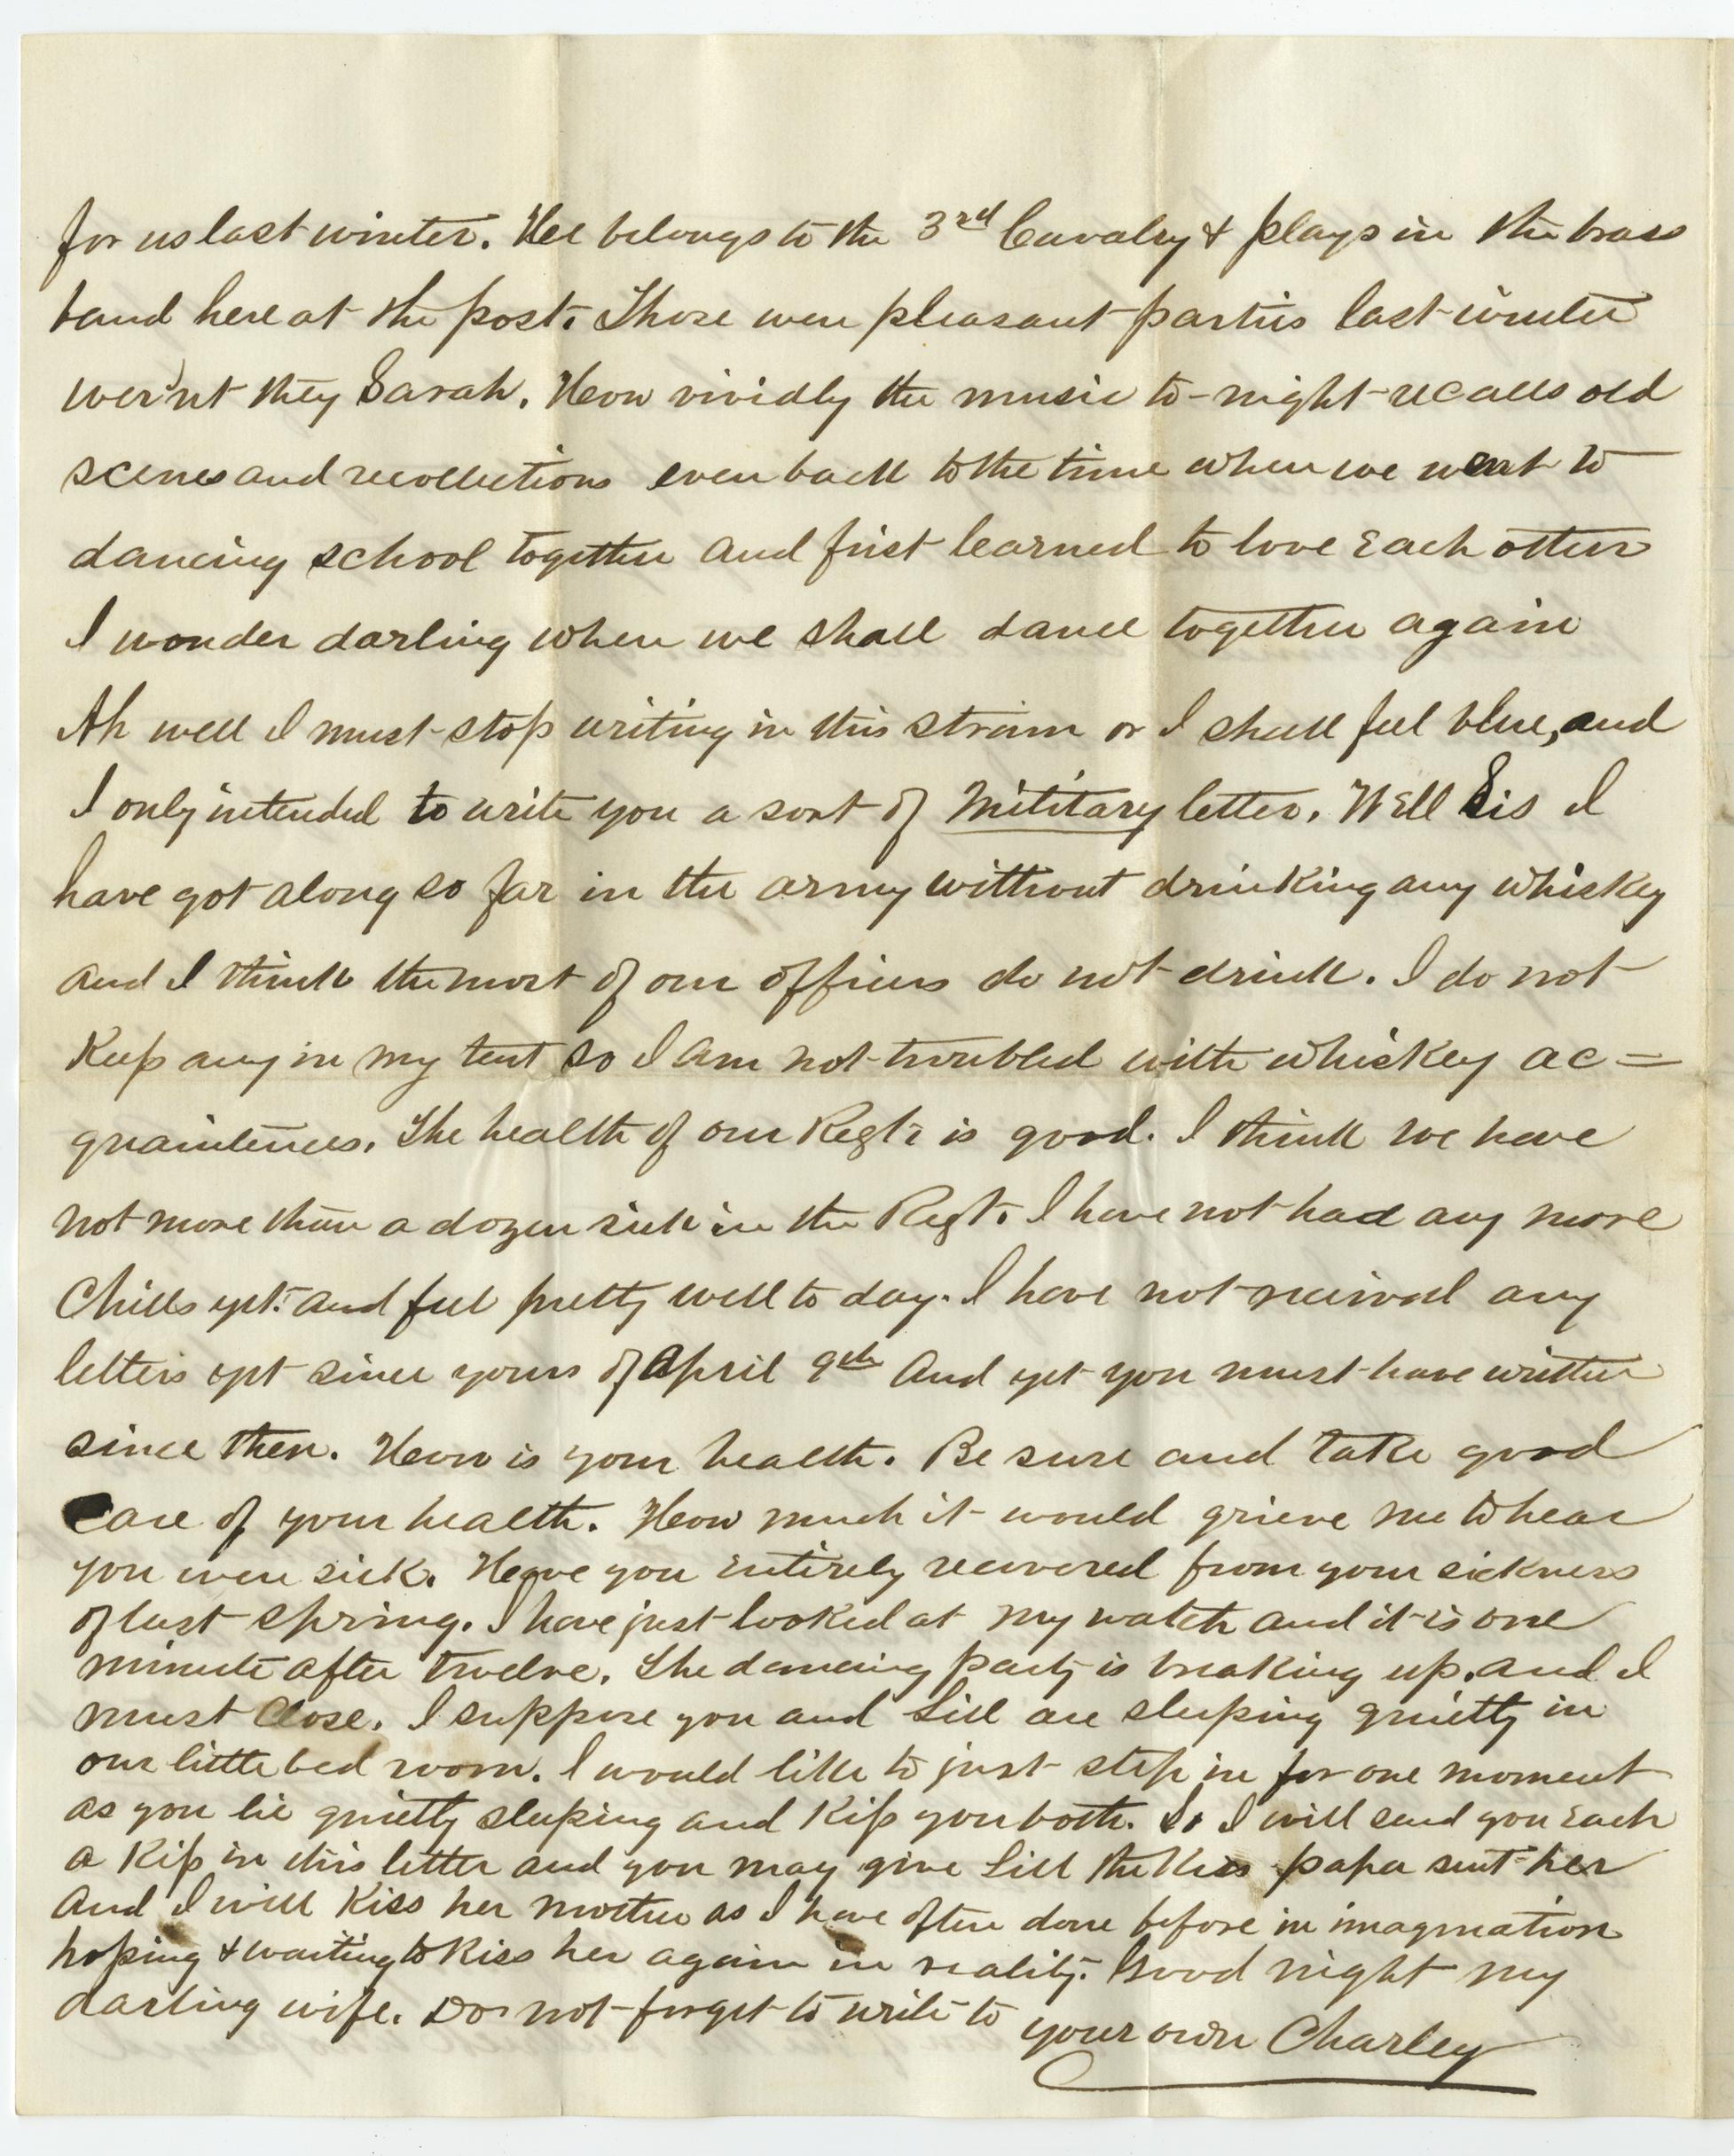 for us last winter. Hee belongs to the 3rd Cavalry & plays in the brass
band here at the post. Those were pleasant parties last winter
wer'nt they Sarah. How vividly the music to-night recalls old
scenes and recollections even back to the time when we went to
dancing school together and first learned to love each other
I wonder darling when we shall dance together again
Ah well I must stop writing in this strain or I shall feel blue, and
I only intended to write you a sort of Military letter. Well Sis I
have got along so far in the army without drinking any whiskey
and I think the most of our officers do not drink. I do not
Keep any in my tent so I am not troubled with whiskey ac=
quaintences. The health of our Regt is good. I think we have
not more than a dozen sick in the Regt. I have not had any more
Chills yet. and feel pretty well to day. I have not received any
letters yet since yours of April 9th And yet you must have written
since then. How is your health. Be sure and take good
care of your health. How much it would grieve me to hear
you were sick. Have you entirely recovered from your sickness
of last spring. I have just looked at my watch and it is one
minute after twelve. The dancing party is breaking up. and I
must close. I suppose you and Lill are sleeping quietly in
our little bed room. I would like to just step in for one moment
as you lie quietly sleeping and Kiss you both. So I will send you each
a Kiss in this letter and you may give Lill the Kiss papa sent her
And I will Kiss her mother as I have often done before in imagination
hoping & waiting to Kiss her again in reality. Good night my
darling wife. Do not forget to write to your own Charley